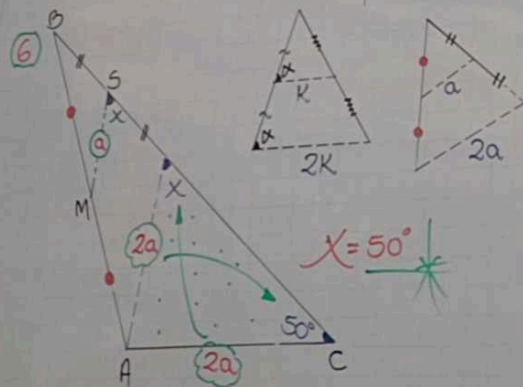 B
6
S
x
a
M
x
2a
50°
A
2a
C
α
K
α
2K
a
2a
X = 50°